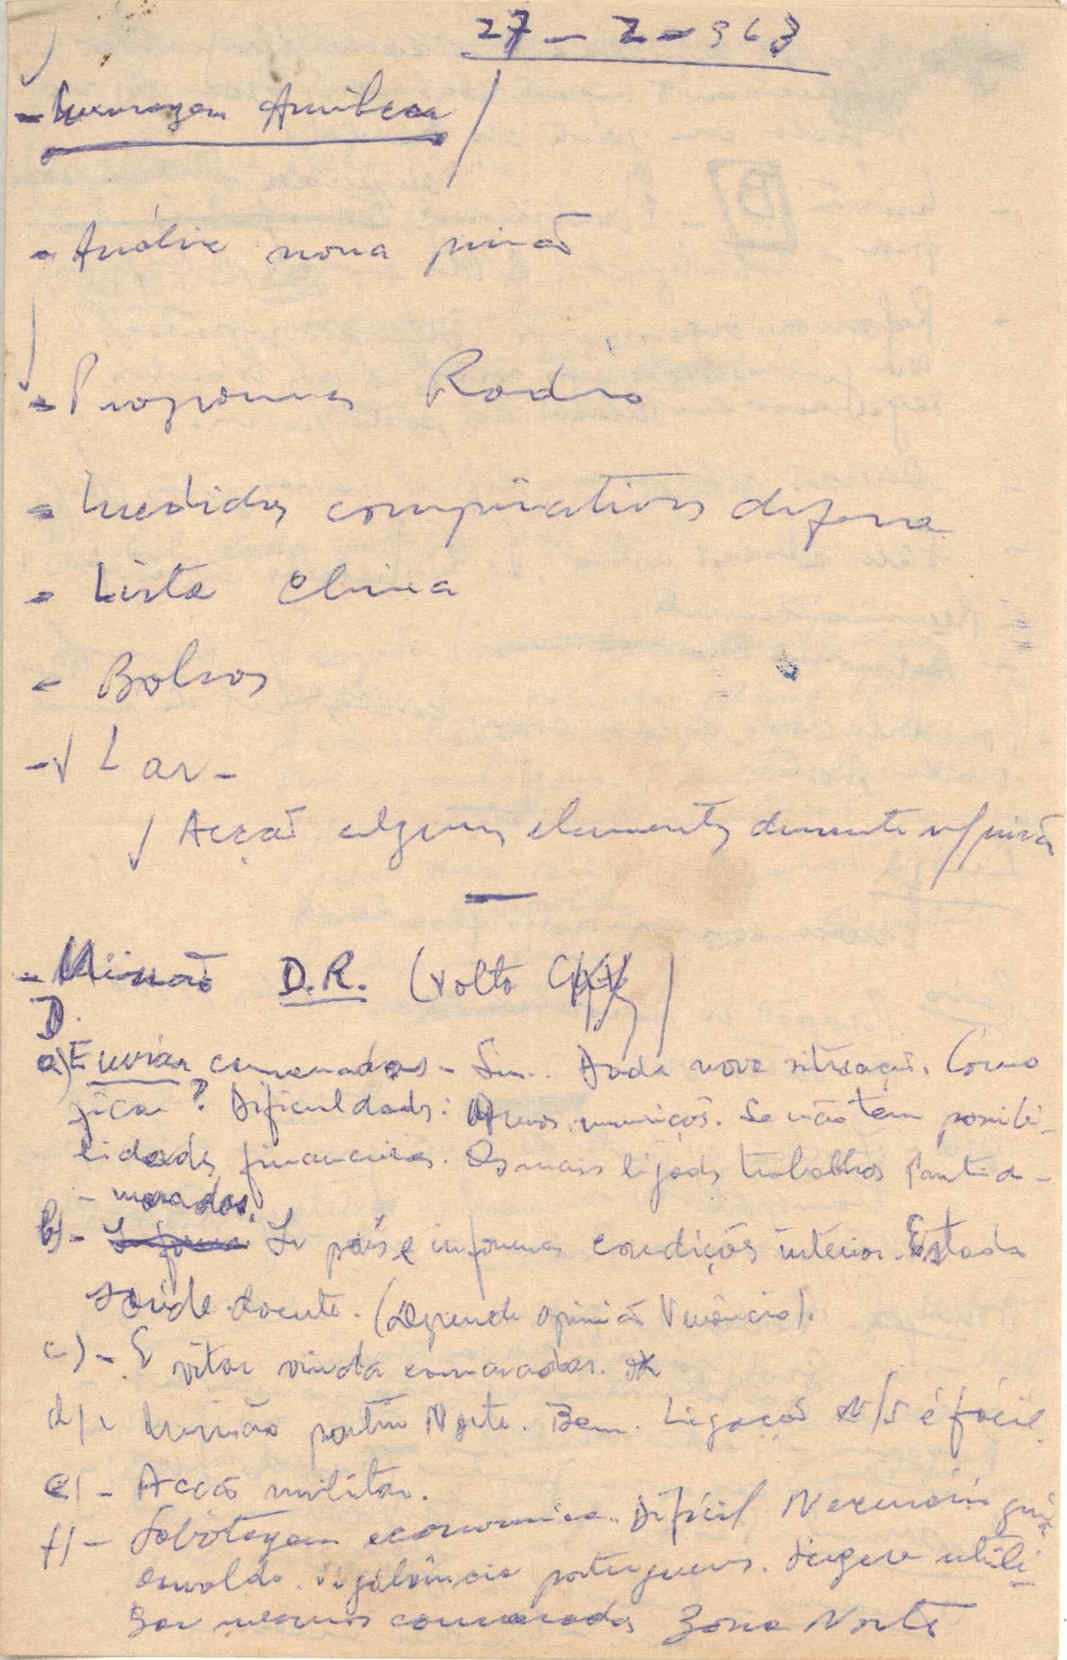 27-2-963
- Mensagem Amílcar
- Análise nova prisão
- Programa Rádio
- Medidas defesa
- Lista China
- Bolsas
- Lar -
Acção alguns elementos durante n/prisão
- Missão D.R. (volto
D.
a) Enviar camaradas - Sim. Dada nova situação. Como
ficar? Dificuldades: Armas, munições. Se não tem possibi-
lidades financeiras. Os mais ligados trabalhos Partido -
- marados.
b) - Informa Se país e informar condições interior. Estado
saúde doente. (Depende opinião Venâncio).
c) - E vitar vinda camaradas.
d) - Missão partir Norte. Bem. Ligação N/S é fácil.
e) - Acção militar.
f) - Sabotagem economica. Difícil
Osvaldo. Vigilância portugueses. Sugere utili-
zar mesmos camaradas Zona Norte